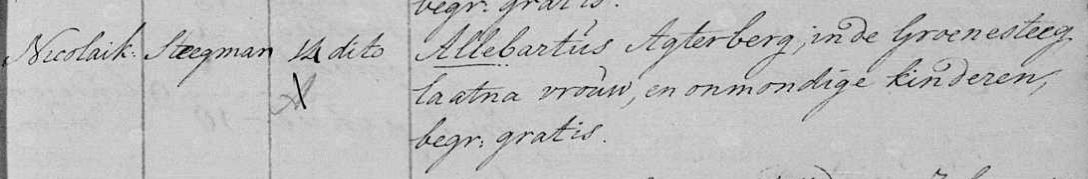 begr: gratis.
Nicolaik: Steegman 12 dito Allebartus Agterberg, in de Groenesteeg
laatna vrouw, en onmondige kinderen,
begr: gratis.